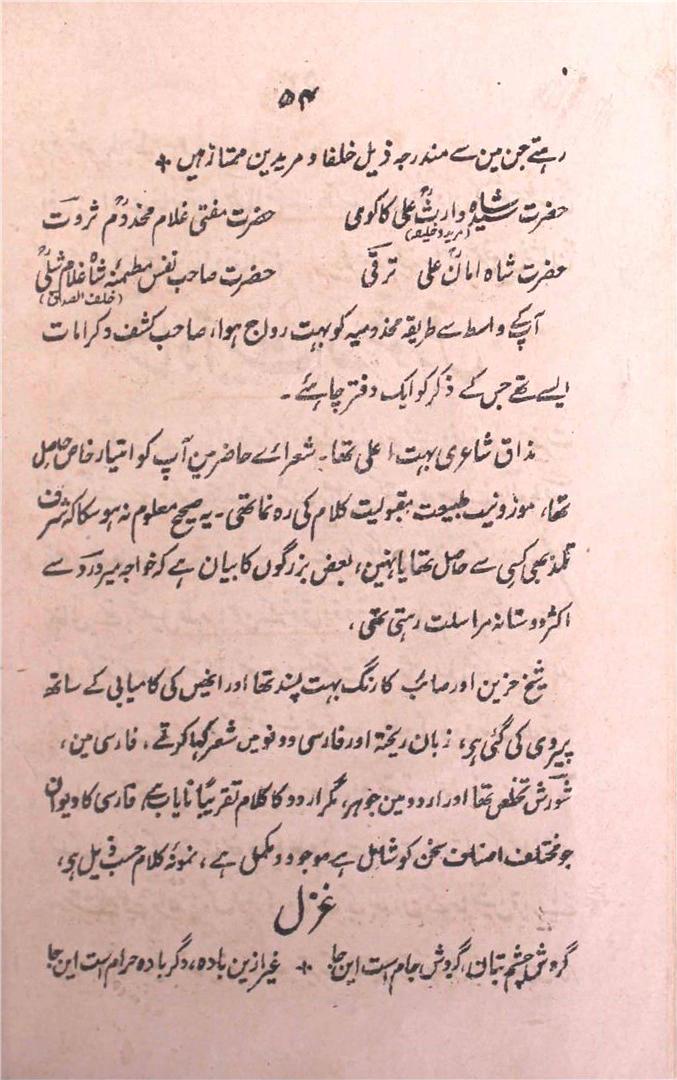 ۵۴
رہتے جن مین سے مندرجہ ذیل خلفا و مریدین ممتاز ہین +
حضرت سید شاہ وارث علی کاکومی حضرت مفتی غلام مخدوم ثروت
(مرید و خلیفہ)
حضرت شاہ امان علی ترقی حضرت صاحب نفس مطمئنہ شاہ غلام شبلی
(خلف الصدق)
آپ کے واسطے سے طریقہ مخدومیہ کو بہت رواج ہوا، صاحب کشف و کرامات
ایسے تھے جس کے ذکر کو ایک دفتر چاہئے۔
مذاق شاعری بہت اعلی تھا۔ شعرائے حاضر مین آپ کو امتیاز خاص حاصل
تھا، موزونیت طبیعت مقبولیت کلام کی رہ نما تھی۔ یہ صحیح معلوم نہ ہو سکا کہ شرف
تلمذ بھی کسی سے حاصل تھا یا نہین، بعض بزرگوں کا بیان ہے کہ خواجہ میر درد سے
اکثر دوستانہ مراسلت رہتی تھی،
شیخ حزین اور صائب کا رنگ بہت پسند تھا اور انھیں کی کامیابی کے ساتھ
پیروی کی گئی ہے، زبان ریختہ اور فارسی دونو میں شعر کہا کرتے، فارسی مین،
شورش تخلص تھا اور اردو مین جوہر، مگر اردو کا کلام تقریباً نایاب ہے، فارسی کا دیوان
جو مختلف اصناف سخن کو شامل ہے موجود و مکمل ہے، نمونہ کلام حسب ذیل ہی،
غزل
گردش چشم بتان، گردش جام است این جا + غیر ازین بادہ، دگر بادہ حرام است این جا